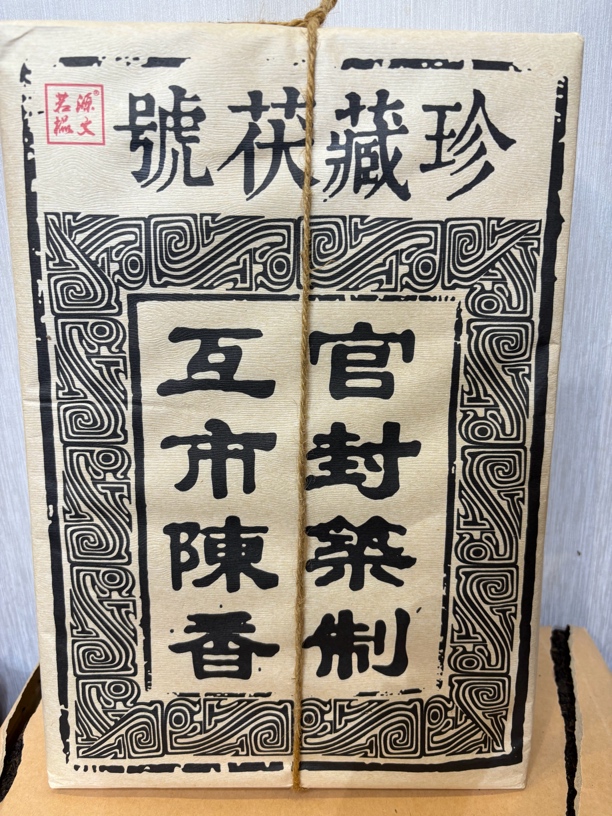 珍藏茯號
官封築制
互市陳香
源文
茗楹